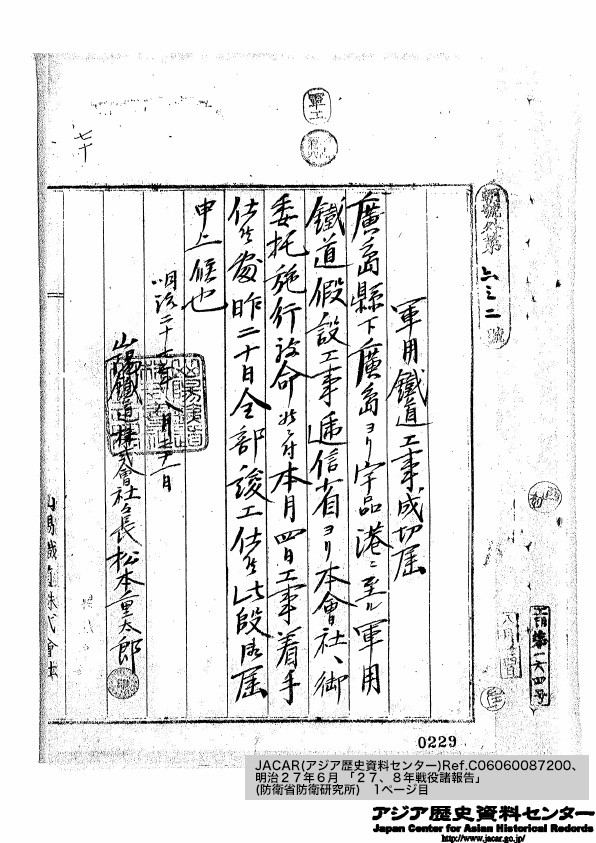 軍工
七十
朝號外第六三二號
軍用鐵道工事成功届
廣島縣下廣島ヨリ宇品港ニ至ル軍用
鐵道假設工事逓信省ヨリ本會社ヘ御
委托施行被命候ニ付本月四日工事着手
仕候處昨二十日全部竣工仕候此段御届
申上候也
明治二十七年八月廿一日
山陽鐵道株式會社々長松本重太郎
山陽鐵道株式會社
第一六四号
0229
JACAR(アジア歴史資料センター)Ref.C06060087200、
明治27年6月 「27、8年戦役諸報告」
(防衛省防衛研究所) 1ページ目
アジア歴史資料センター
Japan Center for Asian Historical Records
http://www.jacar.go.jp/